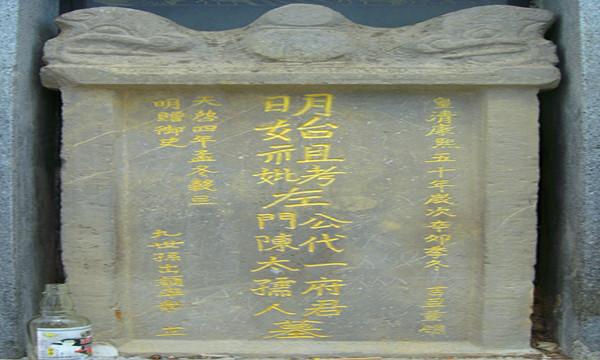 皇清康熙五十年歲次辛卯冬 吉旦重
明始祖考妣左
公代一府君
門陳太孺人
墓
天啓四年孟冬穀旦
明贈御史
九世孫出 立